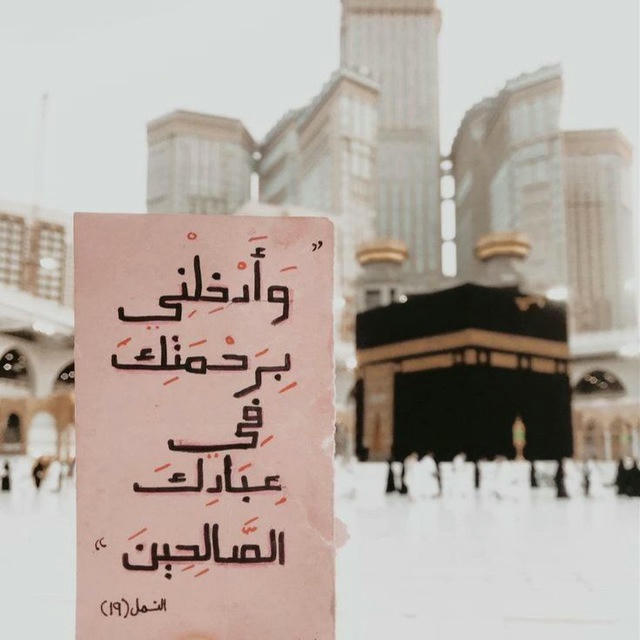 ”وَأَدْخِلْنِي
بِرَحْمَتِكَ
فِي
عِبَادِكَ
الصَّالِحِينَ“
النمل (١٩)